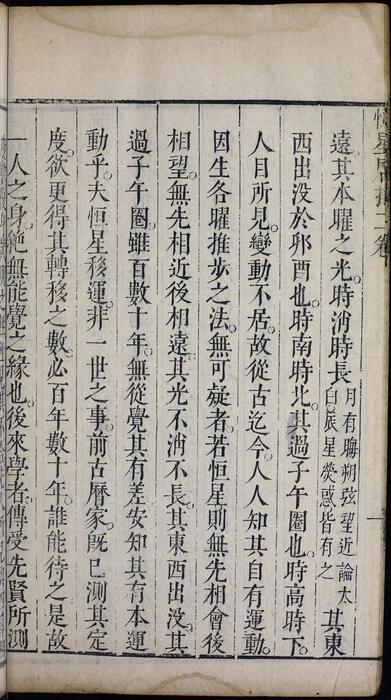 恒星
遠其本曜之光時消時長月有晦朔弦望近論太白辰星熒惑皆有之其東
西出没於夘酉也時南時北其過子午圈也時高時下
人目所見變動不居故從古迄今人人知其自有運動
因生各曜推步之法無可疑者若恒星則無先相會後
相望無先相近後相遠其光不消不長其東西出没其
過子午圈雖百數十年無從覺其有差安知其有本運
動乎夫恒星移運非一世之事前古曆家既已測其定
度欲更得其轉移之數必百年數十年誰能待之是故
一人之身絶無能覺之緣也後來學者傳受先賢所測